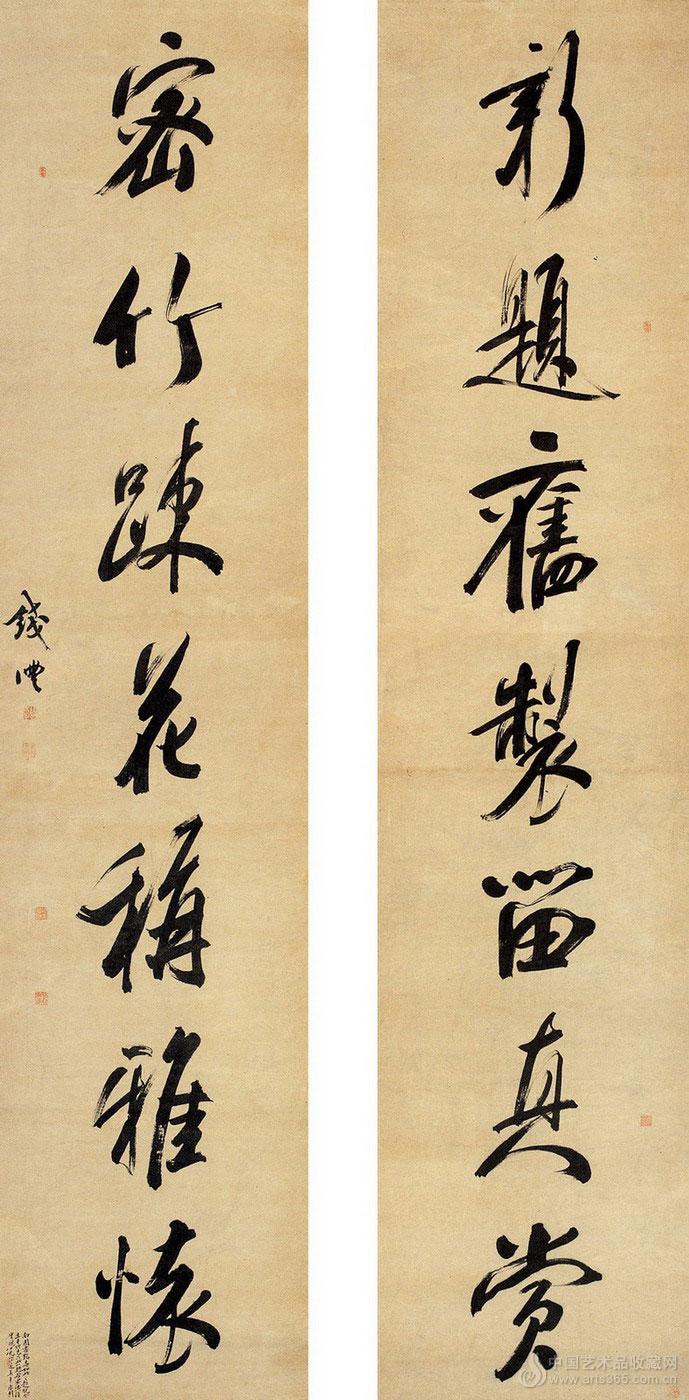 新題舊製留真賞
密竹疎花稱雅懷
錢灃
中国艺术品收藏网
www.arts365.com.cn